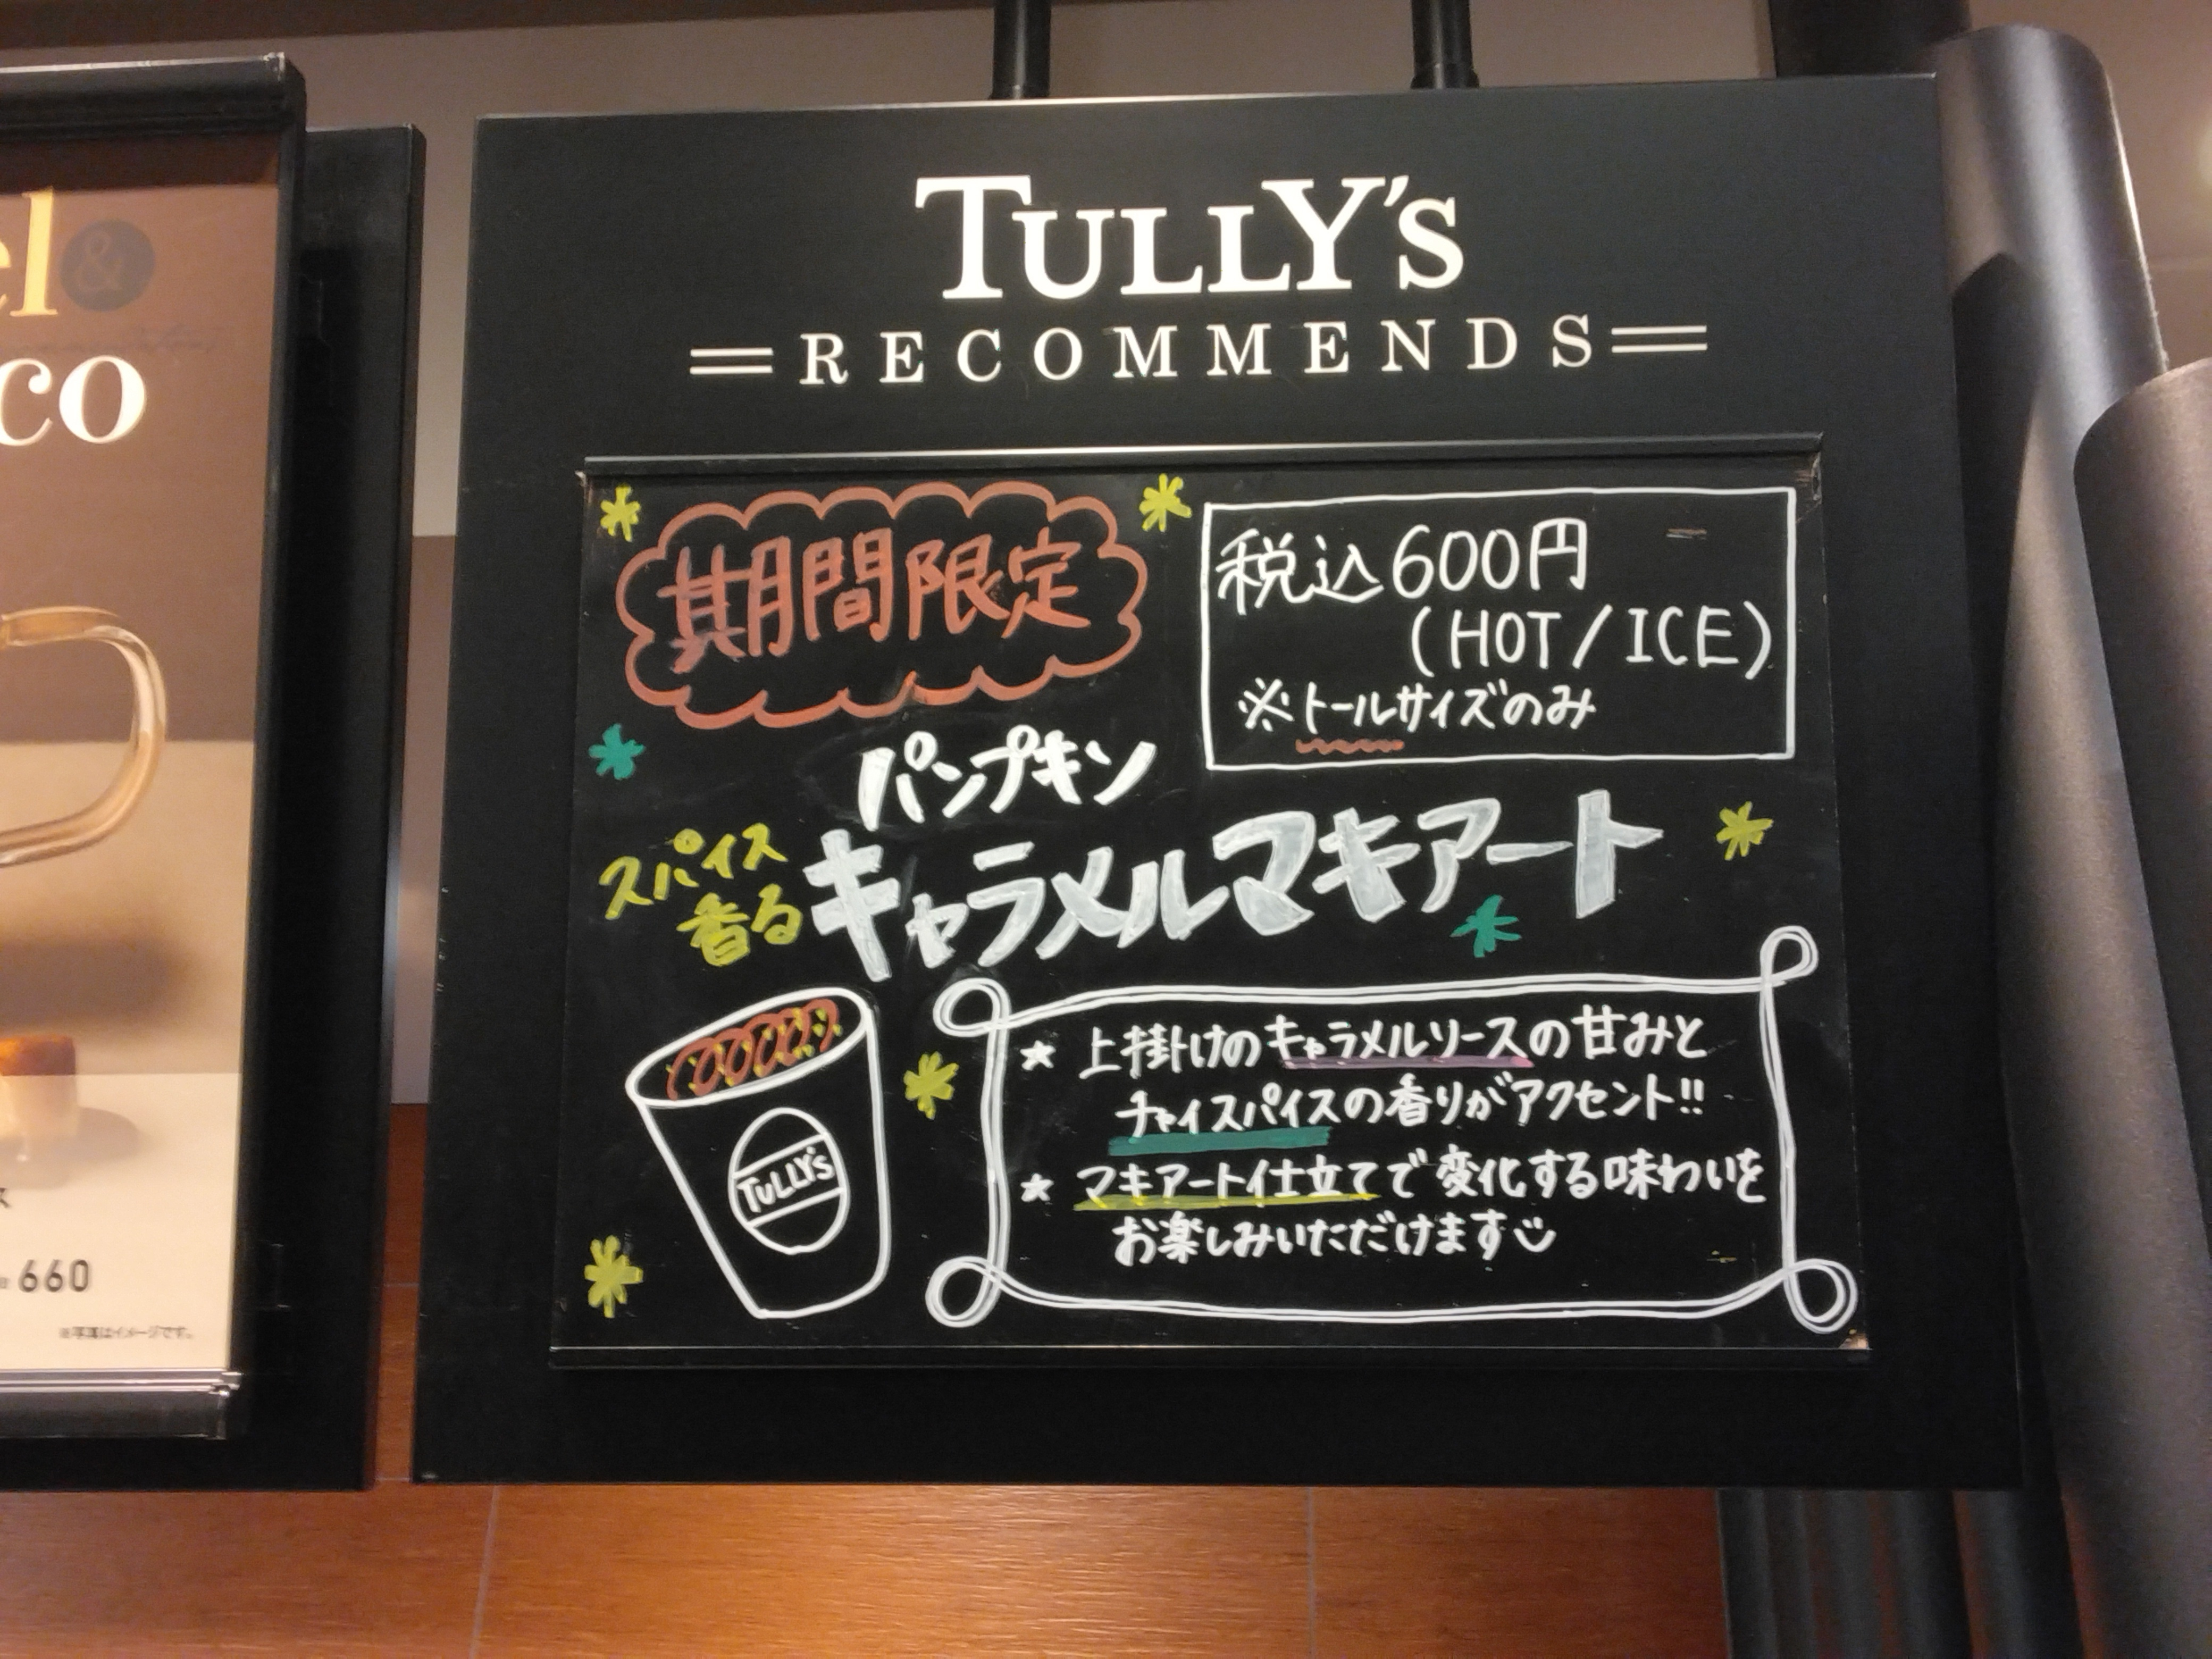 TULLY'S
RECOMMENDS
期間限定
税込600円
(HOT/ICE)
※トールサイズのみ
パンプキン
スパイス
香る
キャラメルマキアート
★ 上掛けのキャラメルソースの甘みと
チャイスパイスの香りがアクセント!!
★ マキアート仕立てで変化する味わいを
お楽しみいただけます
TULLY'S
el
&
co
ス
660
※写真はイメージです。